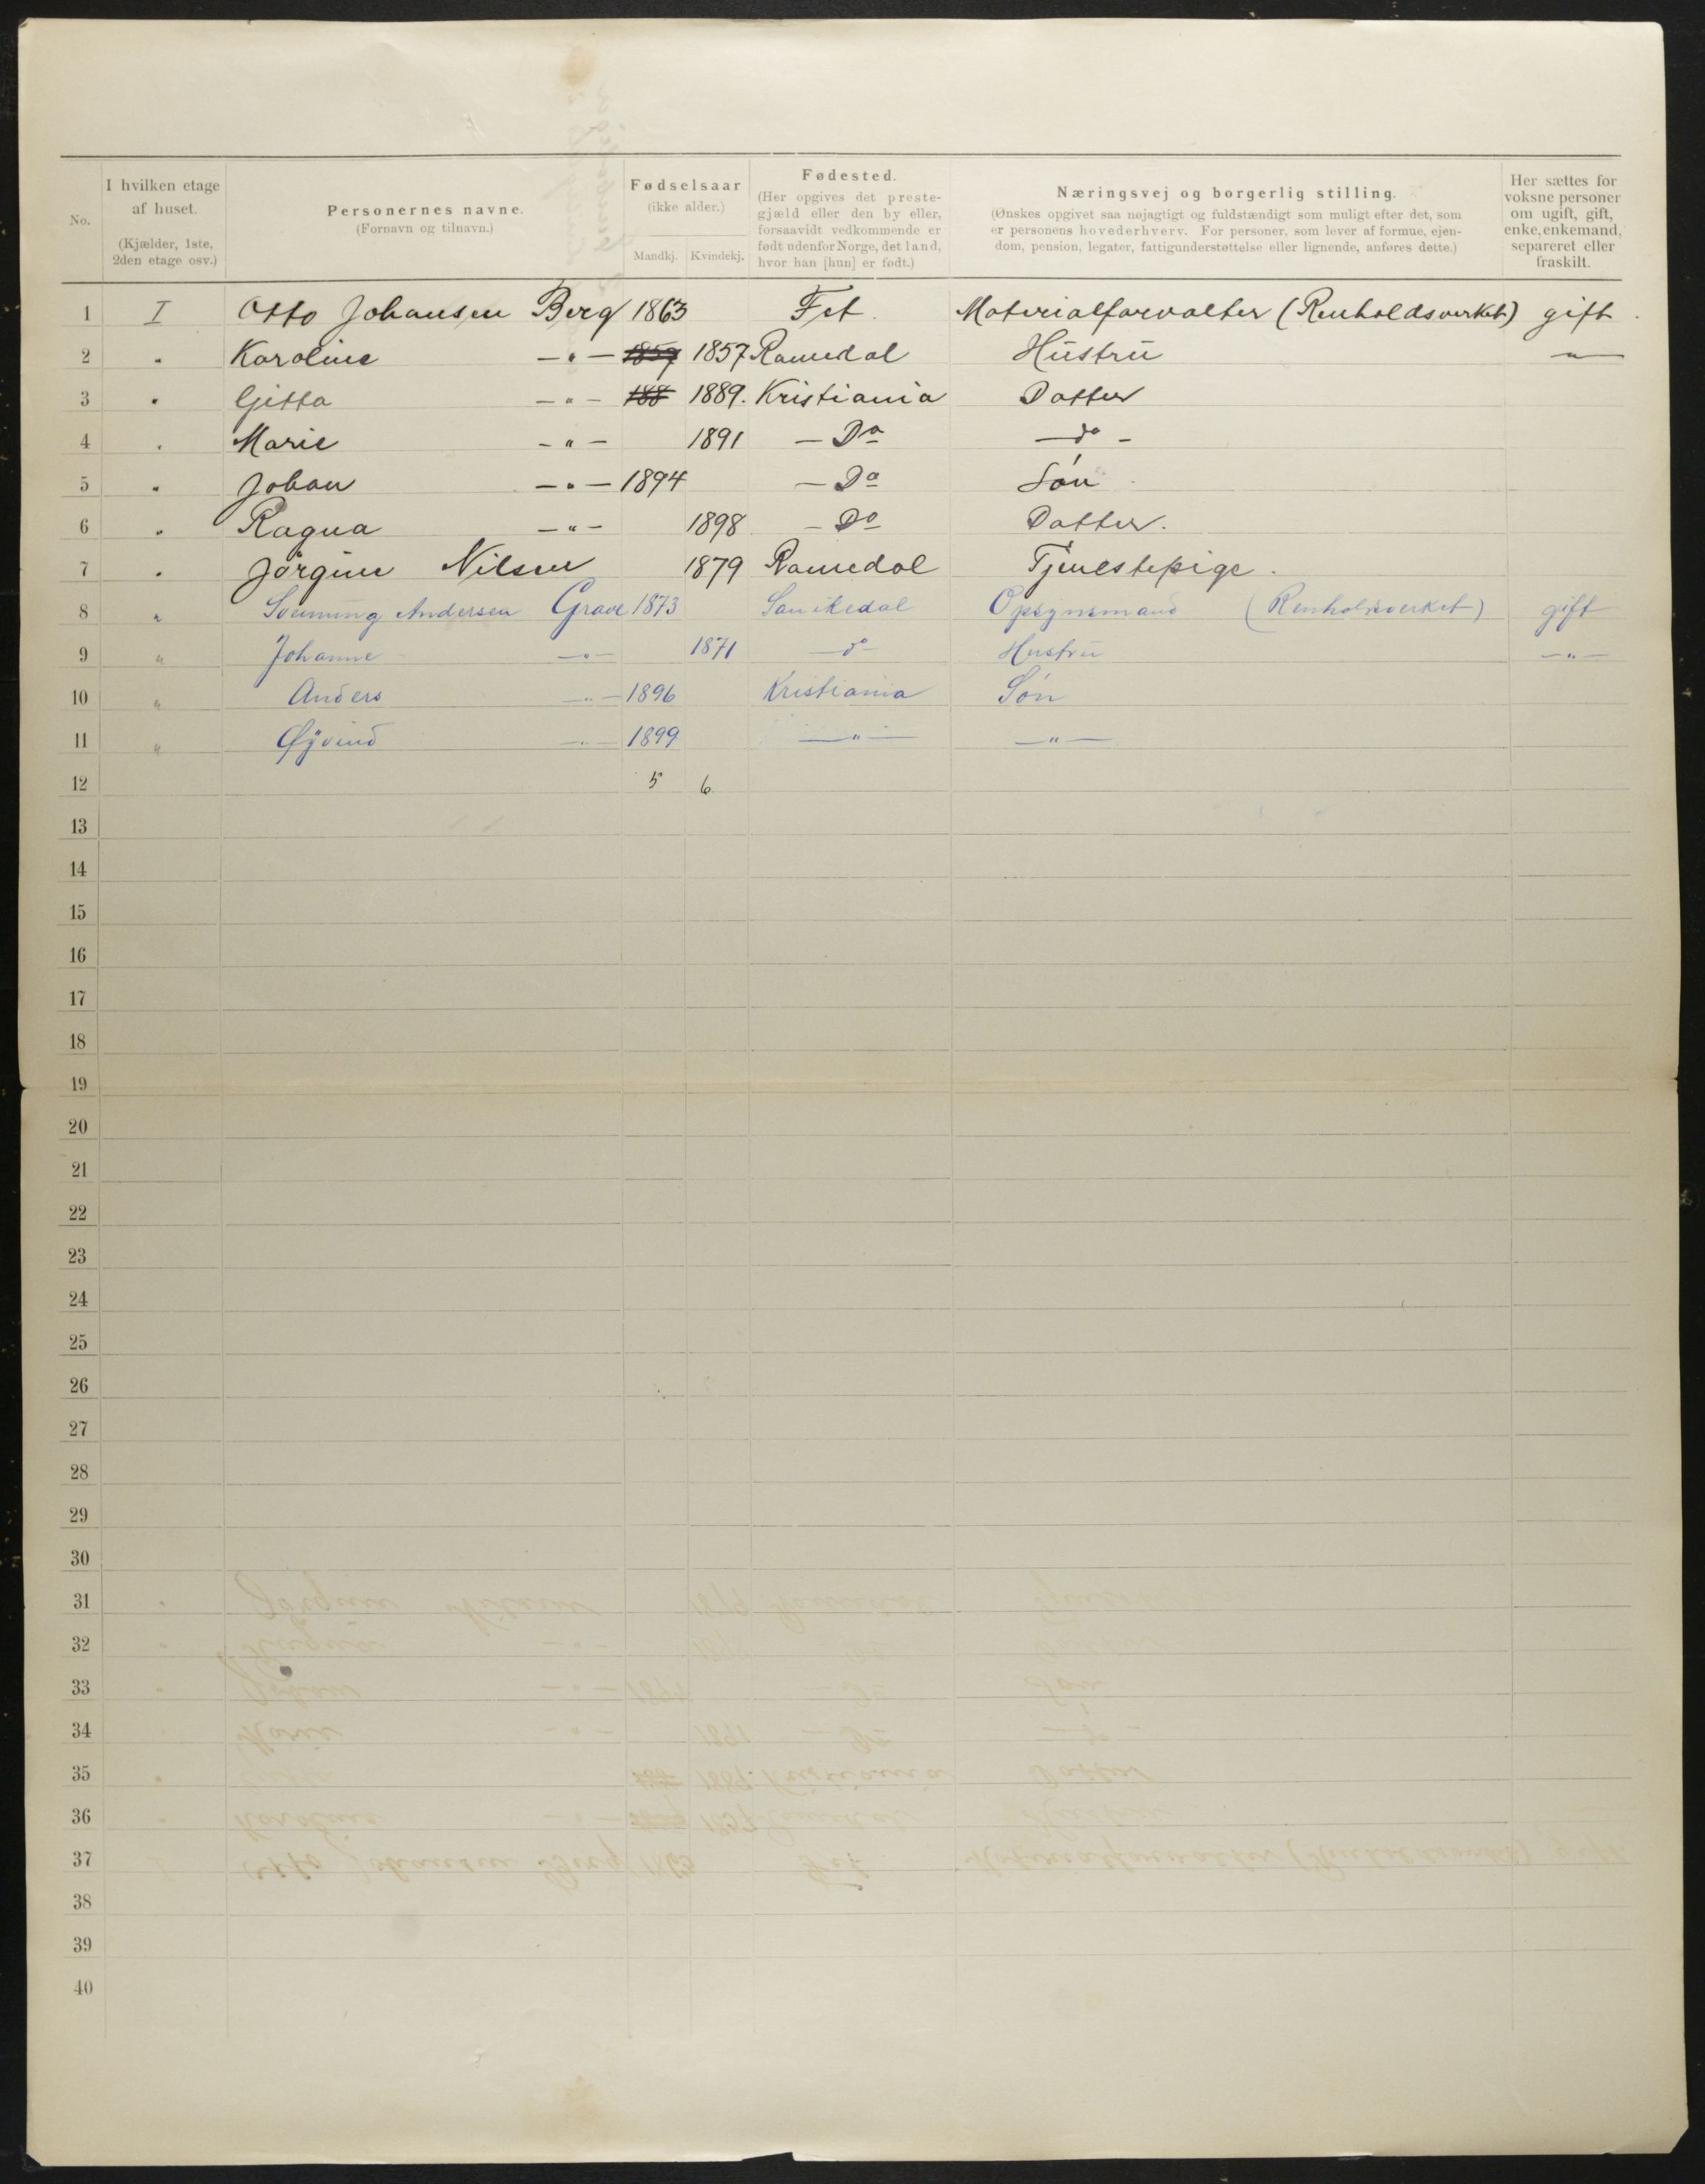 No.
I hvilken etage af huset. (Kjælder, 1ste, 2den etage osv.)
Personernes navne. (Fornavn og tilnavn.)
Fødselsaar (ikke alder.)
Mandkj. Kvindekj.
Fødested. (Her opgives det prestegjæld eller den by eller, forsaavidt vedkommende er født udenfor Norge, det land, hvor han [hun] er født.)
Næringsvej og borgerlig stilling.
(Ønskes opgivet saa nøjagtigt og fuldstændigt som muligt efter det, som
er personens hovederhverv. For personer, som lever af formue, ejen-
dom, pension, legater, fattigunderstøttelse eller lignende, anføres dette.)
Her sættes for voksne personer om ugift, gift, enke, enkemand, separeret eller fraskilt.
1 I Otto Johansen Berg 1863 Fet. Materialforvalter (Renholdsverket) gift.
2 " Karoline —"— 1857 1857 Ramedal Hustru —"—
3 " Gitta —"— 188 1889. Kristiania Datter
4 " Marie —"— 1891 — Do —do—
5 " Johan —"— 1894 — Do Søn
6 " Ragna —"— 1898 — Do Datter.
7 " Jörgine Nilsen 1879 Ramedal Tjenestepige.
8 " Svenning Andersen Grave 1873 Sanikedal Opsynsmand (Renholdsverket) gift
9 " Johanne —"— 1871 —do— Hustru —"—
10 " Anders —"— 1896 Kristiania Søn
11 " Øyvind —"— 1899 —"— —"—
12 5 6
13
14
15
16
17
18
19
20
21
22
23
24
25
26
27
28
29
30
31
32
33
34
35
36
37
38
39
40